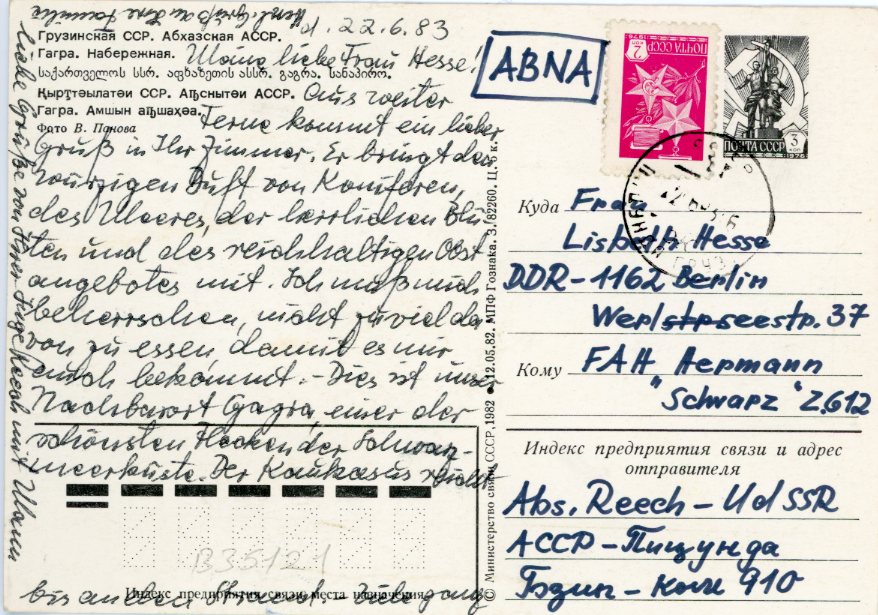 d. 22.6.83
Грузинская ССР. Абхазская АССР.
Гагра. Набережная.
Meine liebe Frau Hesse!
საქართველოს სსრ. აფხაზეთის ასსრ. გაგრა. სანაპირო.
Қырҭтәылатәи ССР. Аҧснытәи АССР.
Гагра. Амшын аҧшаҳәа.
Фото В. Панова
Aus weiter
Ferne kommt ein lieber
Gruß in Ihr Zimmer. Er bringt den
würzigen Duft von Koniferen,
des Meeres, der herrlichen Blü-
ten und des reichhaltigen Obst
angebotes mit. Ich muß mich
beherrschen, nicht zuviel da
von zu essen, damit es mir
auch bekommt. - Dies ist unser
Nachbarort Gagra einer der
schönsten Flecken der Schwarz-
meerküste. Der Kaukasus reicht
bis an den Strand.
Индекс предприятия связи места назначения
Liebe Grüße von Ihrer Inge Reech mit Mann
Herzl. Gruß an Ihre Familie
B35121
© Министерство связи СССР, 1982 • 12.05.82. МПФ Гознака. З. 82260. Ц. 6 к.
ABNA
ПОЧТА СССР
2 коп
1976
ПОЧТА СССР
3 коп
1976
Куда Frau
Lisbeth Hesse
DDR-1162 Berlin
Werlseestr. 37
Кому FAH Hermann
"Schwarz" Z.612
Индекс предприятия связи и адрес
отправителя
Abs. Reech - UdSSR
АССР - Пицунда
Бзип - 910